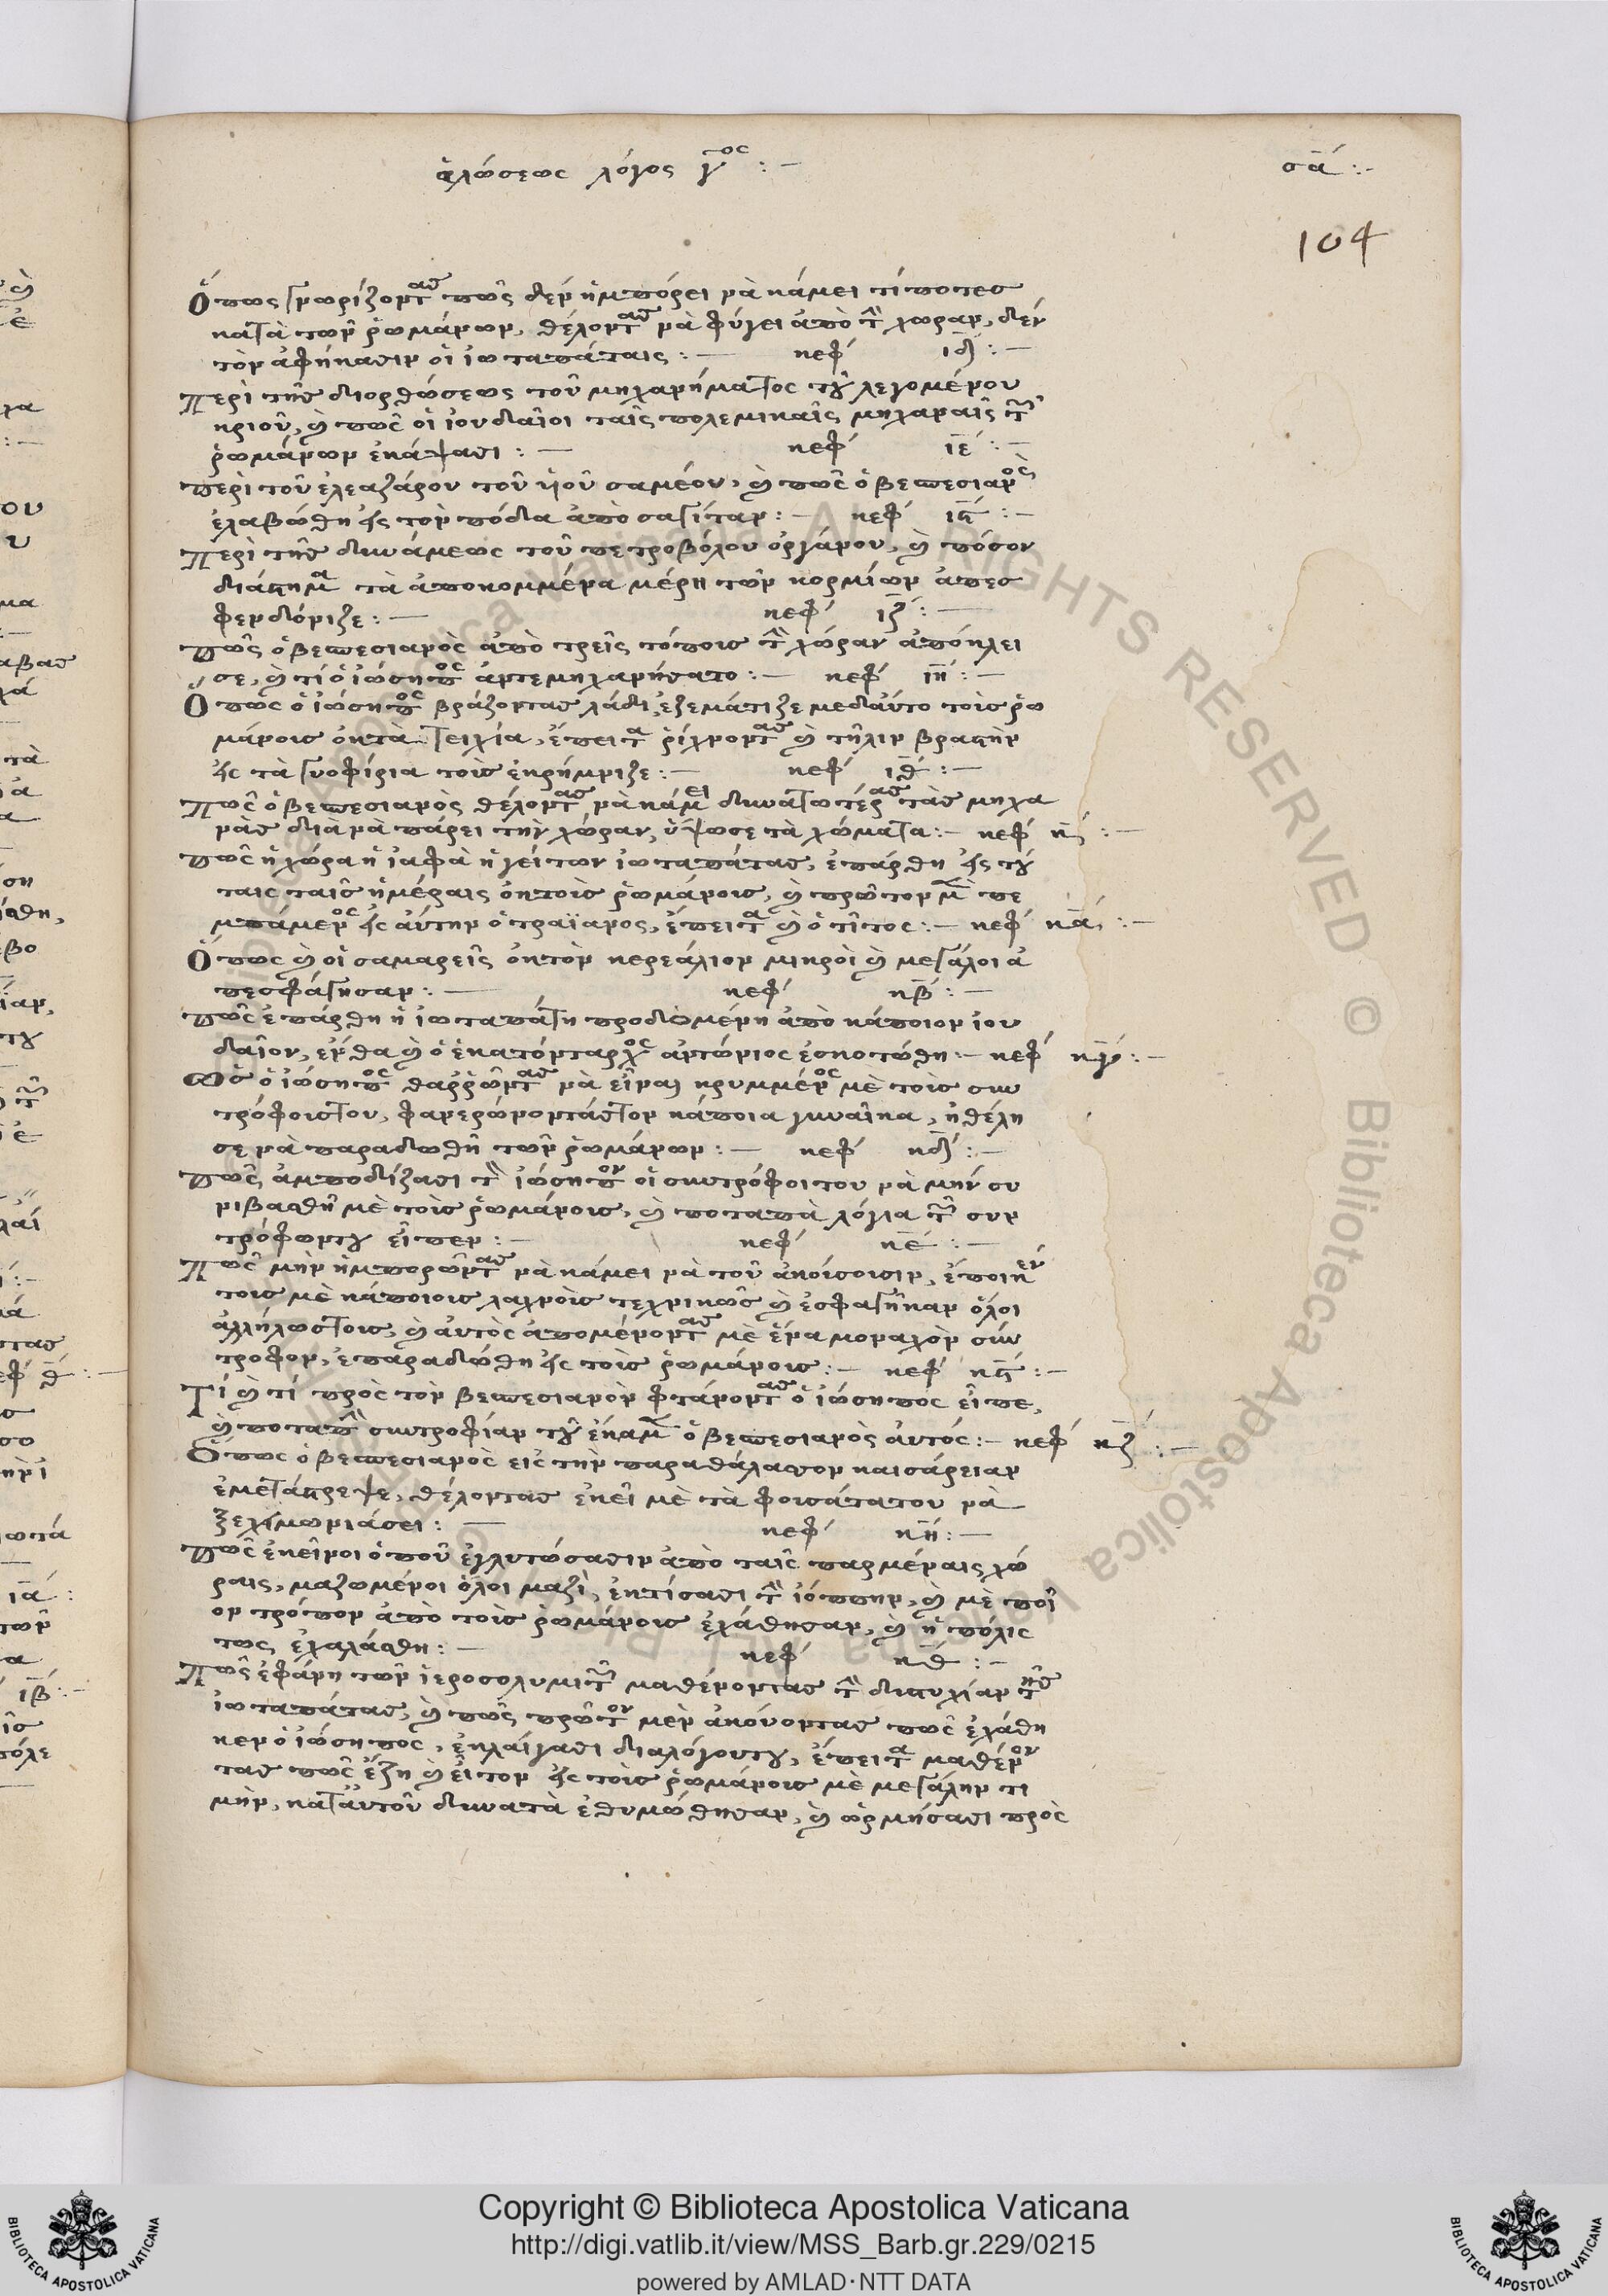 ἁλώσεως λόγος γ^ος :–
σα :–
104
Ὅπως γνωρίζοντας πῶς δὲν ἠμπόρει νὰ κάμει τίποτες
κατὰ τῶν ῥωμάνων, θέλοντας νὰ φύγει ἀπὸ τὴ χώραν, δὲν
τὸν ἀφήκασιν οἱ ἰωταπάταις :– κεφ ιδ :–
Περὶ τῆς διορθώσεως τοῦ μηχανήματος τοῦ λεγομένου
κριοῦ, καὶ πῶς οἱ ἰουδαῖοι ταῖς πολεμικαῖς μηχαναῖς τῶν
ῥωμάνων ἐκάψασι :– κεφ ιε :–
περὶ τοῦ ἐλεαζάρου τοῦ ὑιοῦ σαμέου, καὶ πῶς ὁ βεσπεσιανὸς
ἐλαβώθη εἰς τὸν πόδα ἀπὸ σαγίταν :– κεφ ις :–
Περὶ τῆς δυνάμεως τοῦ πετροβόλου ὀργάνου, καὶ πόσον
διάστημα τὰ ἀποκομμένα μέρη τῶν κορμίων ἀπεσ
φενδόνιζε :– κεφ ιζ :–
πῶς ὁ βεσπεσιανὸς ἀπὸ τρεῖς τόποις τὴ χώραν ἀπόκλει
σε, καὶ τί ὁ ἰώσηπος ἀντεμηχανήσατο :– κεφ ιη :–
Ὅπως ὁ ἰώσηπος βράζοντας λάδι, ἐζεμάτιζε μεδαύτο τοὶς ῥω
μάνοις ὀκτὰ τειχία, ἔπειτα ῥίχνοντας καὶ τῆλιν βραστὴν
εἰς τὰ γυοφίρια τοὶς ἐκρήμνιζε :– κεφ ιθ :–
Πῶς ὁ βεσπεσιανὸς θέλοντας νὰ κάμει δυνατωτέρας τὰς μηχα
νὰς διὰ νὰ πάρει τὴν χώραν, ὕψωσε τὰ χώματα :– κεφ κ :–
πῶς ἡ χώρα ἡ ἰαφὰ ἡ γείτων ἰωταπάτας, ἐπάρθη εἰς τού
ταις ταῖς ἡμέραις ὀκτοὶς ῥωμάνοις, καὶ πρῶτον μὲν πε
μπάμενος εἰς αὐτην ὁ τραϊανος, ἔπειτα καὶ ὁ τῖτος :– κεφ κα :–
Ὅπως καὶ οἱ σαμαρεῖς ὀκτὸν κερεάλιον μικροὶ καὶ μεγάλοι ἀ
πεσφάγησαν :– κεφ κβ :–
πῶς ἐπάρθη ἡ ἰωταπάτη προδωμένη ἀπὸ κάποιον ἰου
δαῖον, ἔνθα καὶ ὁ ἑκατόνταρχος ἀντώνιος ἐσκοτώθη :– κεφ κγ :–
Ὡς ὁ ἰώσηπος θαῤῥῶντας νὰ εἶναι κρυμμένος μὲ τοὶς συν
τρόφοιστου, φανερώνοντάςτον κάποια γυναῖκα, ἠθέλη
σε νὰ παραδωθῆ τῶν ῥωμάνων :– κεφ κδ :–
πῶς ἀμποδίζασι τὸν ἰώσηπον οἱ συντρόφοιτου νὰ μὴν συ
νιβασθῆ μὲ τοὶς ῥωμάνοις, καὶ ποταπὰ λόγια τῶν συν
τρόφωντου εἶπεν :– κεφ κε :–
Πῶς μὴν ἠμπορῶντας νὰ κάμει νὰ τοῦ ἀκοίσοισιν, ἐποίηέν
τοις μὲ κάποιοις λαχνοὶς τεχνικῶς καὶ ἐσφαγῆκαν ὁλοι
ἀλλήλωςτοις, καὶ αὐτὸς ἀπομένοντας μὲ ἕνα μοναχὸν σύν
τροφον, ἐπαραδώθη εἰς τοὶς ῥωμάνοις :– κεφ κς :–
Τί καὶ τί πρὸς τὸν βεσπεσιανὸν φτάνοντας ὁ ἰώσηπος εἶπε,
καὶ ποταπὴ συντροφίαν τοῦ ἔκαμεν ὁ βεσπεσιανὸς αὐτός :– κεφ κζ :–
Ὅπως ὁ βεσπεσιανὸς εἰς τὴν παραθάλασσον καισάρειαν
ἐμετάστρεψε, θέλοντας ἐκεῖ μὲ τὰ φοισάτατου νὰ
ξεχειμωνιάσει :– κεφ κη :–
πῶς ἐκεῖνοι ὁποῦ ἐγλυτώσασιν ἀπὸ ταῖς παρμέναις χώ
ραις, μαζωμένοι ὅλοι μαζὶ, ἐκτίσασι τὴ ἰόππην, καὶ μὲ ποῖ
ον τρόπον ἀπὸ τοὶς ῥωμάνοις ἐχάθησαν, καὶ ἡ πόλις
τως ἐχαλάσθη :– κεφ κθ :–
Πῶς ἐφάνη τῶν ἱεροσολυμιτῶν μαθένοντας τὴ δυστυχίαν τῆς
ἰωταπάτας, καὶ πῶς πρῶτον μὲν ἀκούοντας πῶς ἐχάθη
κεν ὁ ἰώσηπος, ἐκλαίγασι διαλόγουτου, ἔπειτα μαθένον
τας πῶς ἔζη καὶ εἶτον εἰς τοὶς ῥωμάνοις μὲ μεγάλην τι
μὴν, κατ' αὐτοῦ δυνατὰ ἐθυμώθησαν, καὶ ὡρμήσασι πρὸς
Copyright © Biblioteca Apostolica Vaticana
http://digi.vatlib.it/view/MSS_Barb.gr.229/0215
powered by AMLAD·NTT DATA